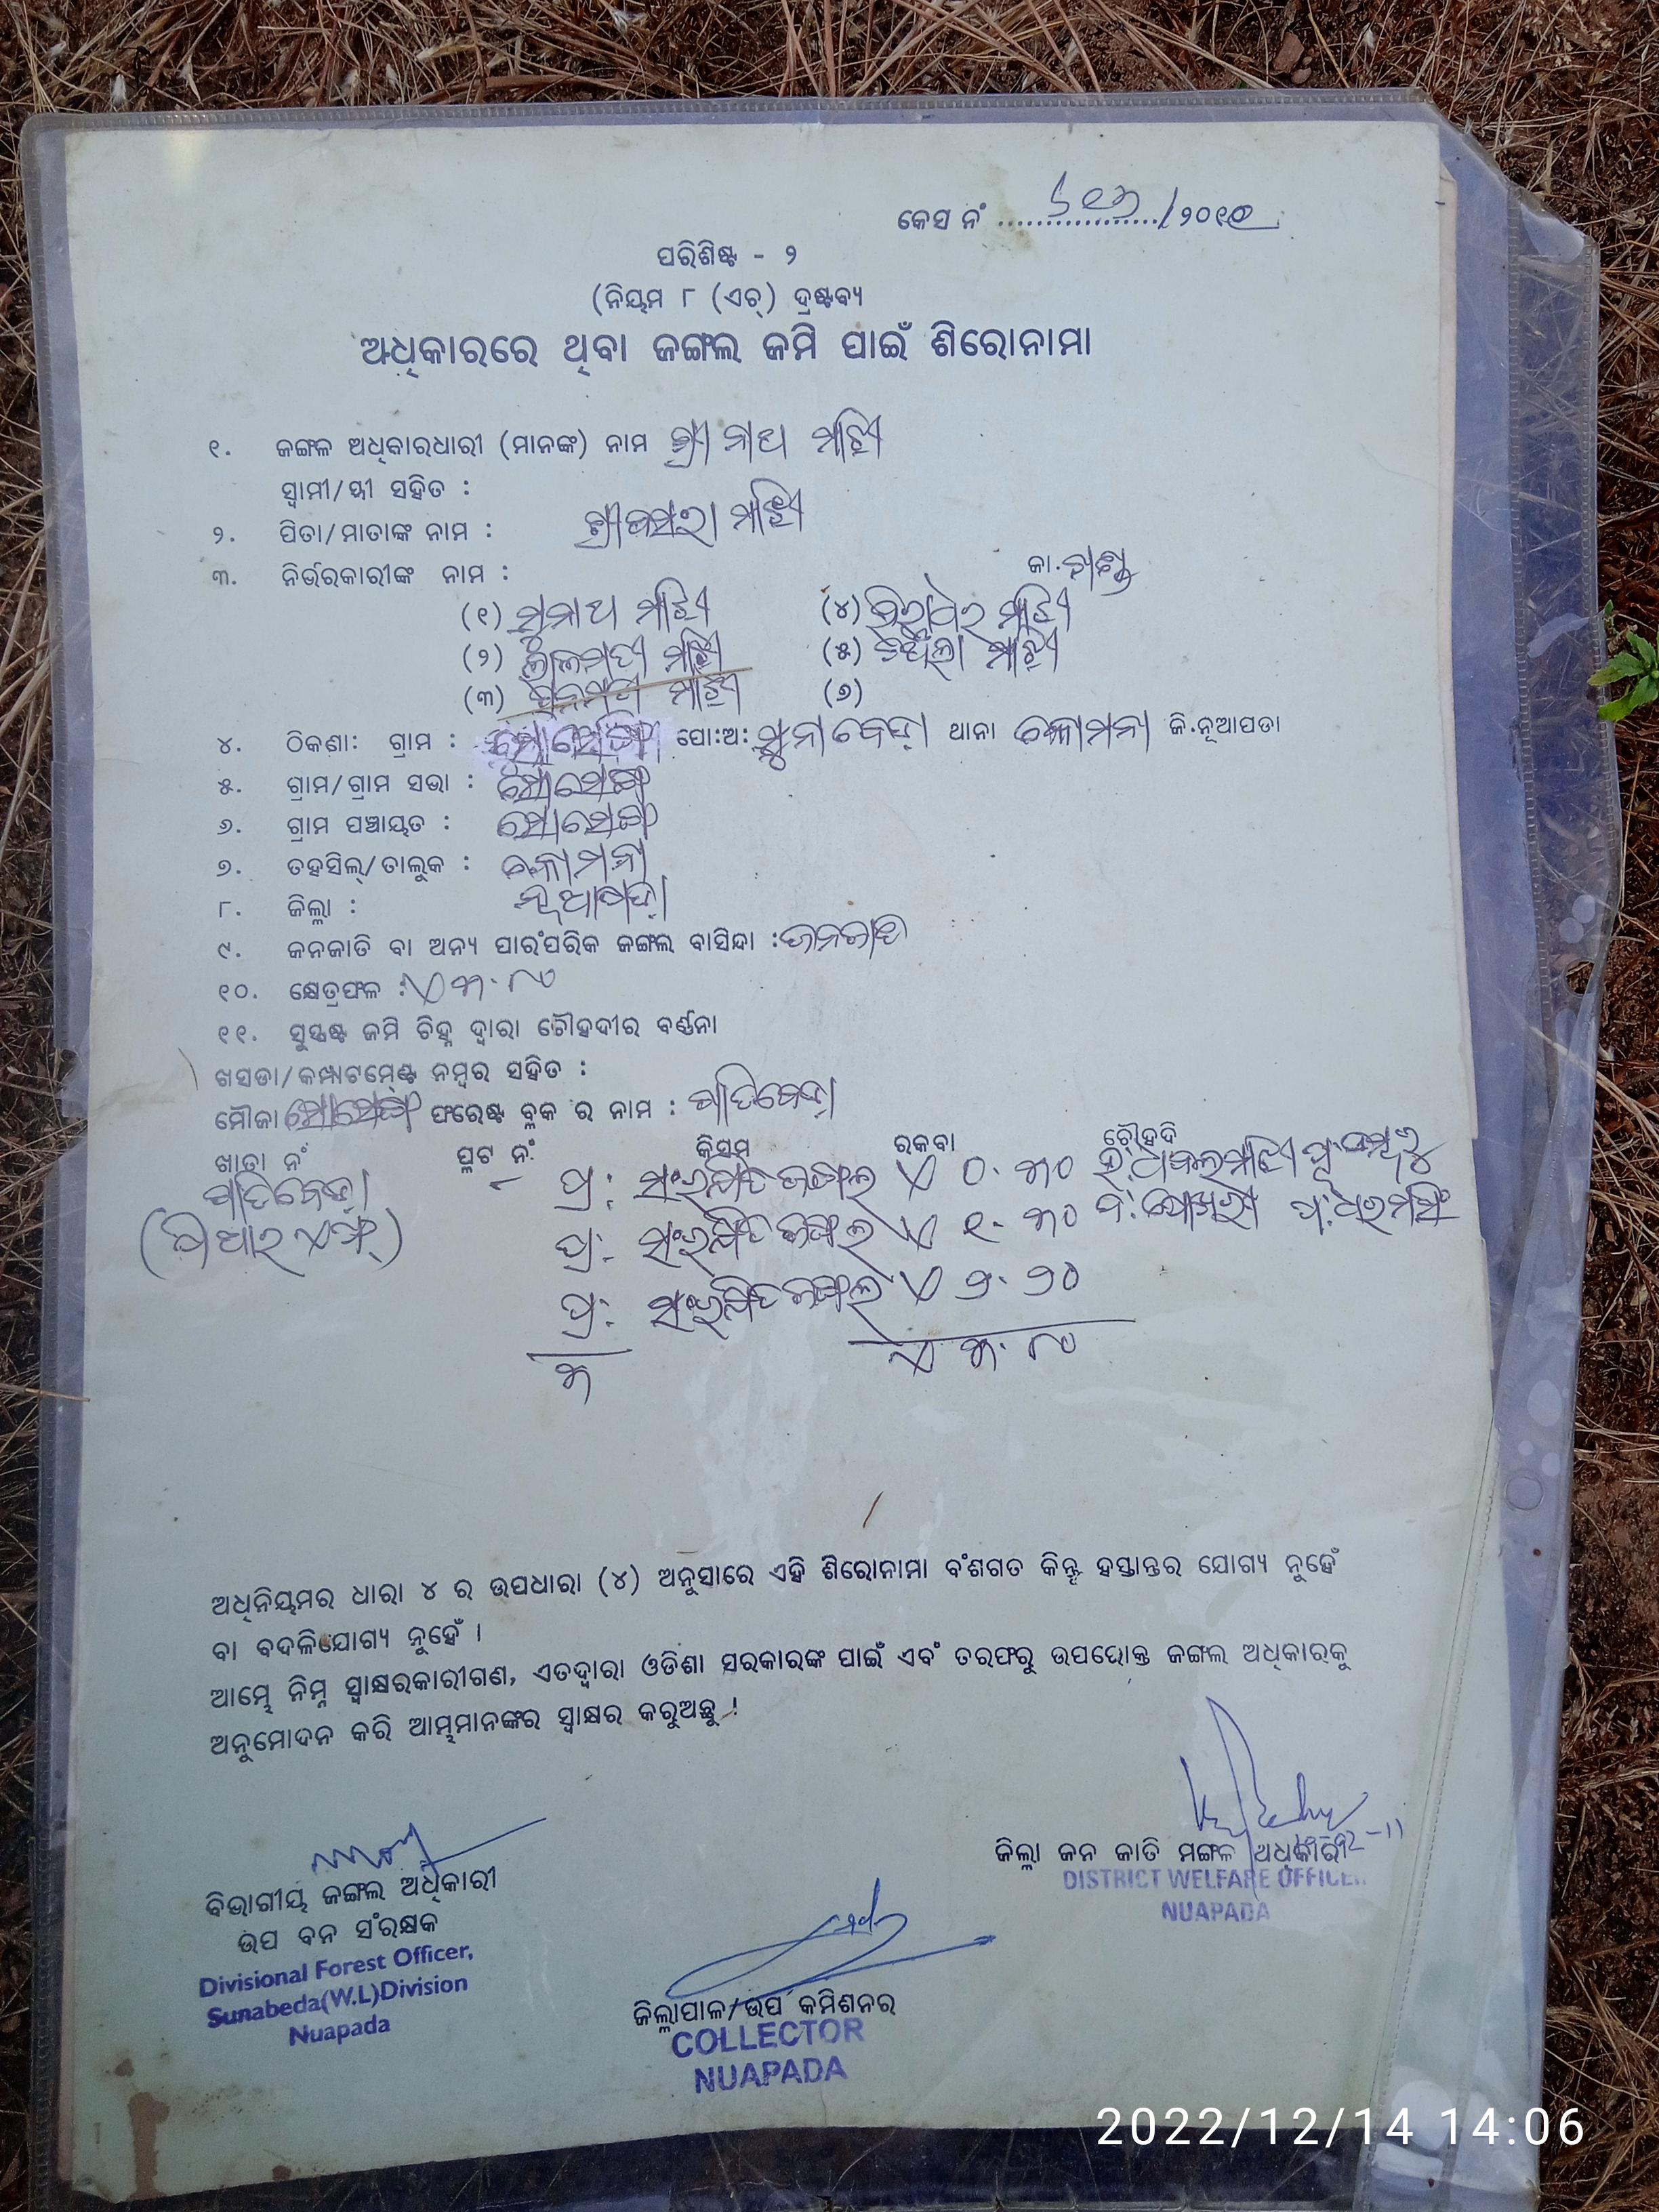 କେସ ନଂ ..................../୨୦୧୧
ପରିଶିଷ୍ଟ - ୨
(ନିୟମ ୮ (ଏଚ୍) ଦ୍ରଷ୍ଟବ୍ୟ
ଅଧିକାରରେ ଥିବା ଜଙ୍ଗଲ ଜମି ପାଇଁ ଶିରୋନାମା
୧. ଜଙ୍ଗଳ ଅଧିକାରଧାରୀ (ମାନଙ୍କ) ନାମ ଶ୍ରୀ ନାଥ ମାଝି
ସ୍ୱାମୀ/ସ୍ତ୍ରୀ ସହିତ :
୨. ପିତା/ମାତାଙ୍କ ନାମ : ମାଝି
୩. ନିର୍ଭରକାରୀଙ୍କ ନାମ : ଜା.
(୧) ସୁନାଥ ମାଝି (୪) ମାଝି
(୨) ମାଝି (୫) ମାଝି
(୩) ମାଝି (୬)
୪. ଠିକଣା: ଗ୍ରାମ : ସୋସେଙ୍ଗ ପୋ:ଅ: ସୁନାବେଡ଼ା ଥାନା କୋମନା ଜି.ନୂଆପଡା
୫. ଗ୍ରାମ/ଗ୍ରାମ ସଭା : ସୋସେଙ୍ଗ
୬. ଗ୍ରାମ ପଞ୍ଚାୟତ : ସୋସେଙ୍ଗ
୭. ତହସିଲ୍/ତାଲୁକ : କୋମନା
୮. ଜିଲ୍ଲା : ନୂଆପଡ଼ା
୯. ଜନଜାତି ବା ଅନ୍ୟ ପାରଂପରିକ ଜଙ୍ଗଲ ବାସିନ୍ଦା : ଜନଜାତି
୧୦. କ୍ଷେତ୍ରଫଳ : ଏ ୩.୮୦
୧୧. ସୁସ୍ପଷ୍ଟ ଜମି ଚିହ୍ନ ଦ୍ୱାରା ଚୌହଦୀର ବର୍ଣ୍ଣନା
ଖସଡା/କମ୍ପାଟମେଣ୍ଟ ନମ୍ବର ସହିତ :
ମୌଜା ସୋସେଙ୍ଗ ଫରେଷ୍ଟ ବ୍ଲକ ର ନାମ : ପାତିବେଡ଼ା
ଖାତା ନଂ ପ୍ଲଟ ନଂ କିସମ ରକବା ଚୌହଦି
ପାତିବେଡ଼ା ପ୍ର: ସଂରକ୍ଷିତ ଜଙ୍ଗଲ ଏ ୦.୩୦ ଉ: ମାଝି ପୂ:
(ପି ଆର ଏଫ୍) ପ୍ର: ସଂରକ୍ଷିତ ଜଙ୍ଗଲ ଏ ୧.୩୦ ଦ: ପୋଖରୀ ପ: ଧରମସିଂ
ପ୍ର: ସଂରକ୍ଷିତ ଜଙ୍ଗଲ ଏ ୨.୨୦
୩ ଏ ୩.୮୦
ଅଧିନିୟମର ଧାରା ୪ ର ଉପଧାରା (୪) ଅନୁସାରେ ଏହି ଶିରୋନାମା ବଂଶଗତ କିନ୍ତୁ ହସ୍ତାନ୍ତର ଯୋଗ୍ୟ ନୁହେଁ
ବା ବଦଳିଯୋଗ୍ୟ ନୁହେଁ ।
ଆମ୍ଭେ ନିମ୍ନ ସ୍ୱାକ୍ଷରକାରୀଗଣ, ଏତଦ୍ୱାରା ଓଡିଶା ସରକାରଙ୍କ ପାଇଁ ଏବଂ ତରଫରୁ ଉପରୋକ୍ତ ଜଙ୍ଗଲ ଅଧିକାରକୁ
ଅନୁମୋଦନ କରି ଆମ୍ଭମାନଙ୍କର ସ୍ୱାକ୍ଷର କରୁଅଛୁ !
ଜିଲ୍ଲା ଜନ ଜାତି ମଙ୍ଗଳ ଅଧିକାରୀ
DISTRICT WELFARE OFFICER
NUAPADA
ବିଭାଗୀୟ ଜଙ୍ଗଲ ଅଧିକାରୀ
ଉପ ବନ ସଂରକ୍ଷକ
Divisional Forest Officer,
Sunabeda(W.L)Division
Nuapada
ଜିଲ୍ଲାପାଳ/ଉପ କମିଶନର
COLLECTOR
NUAPADA
2022/12/14 14:06